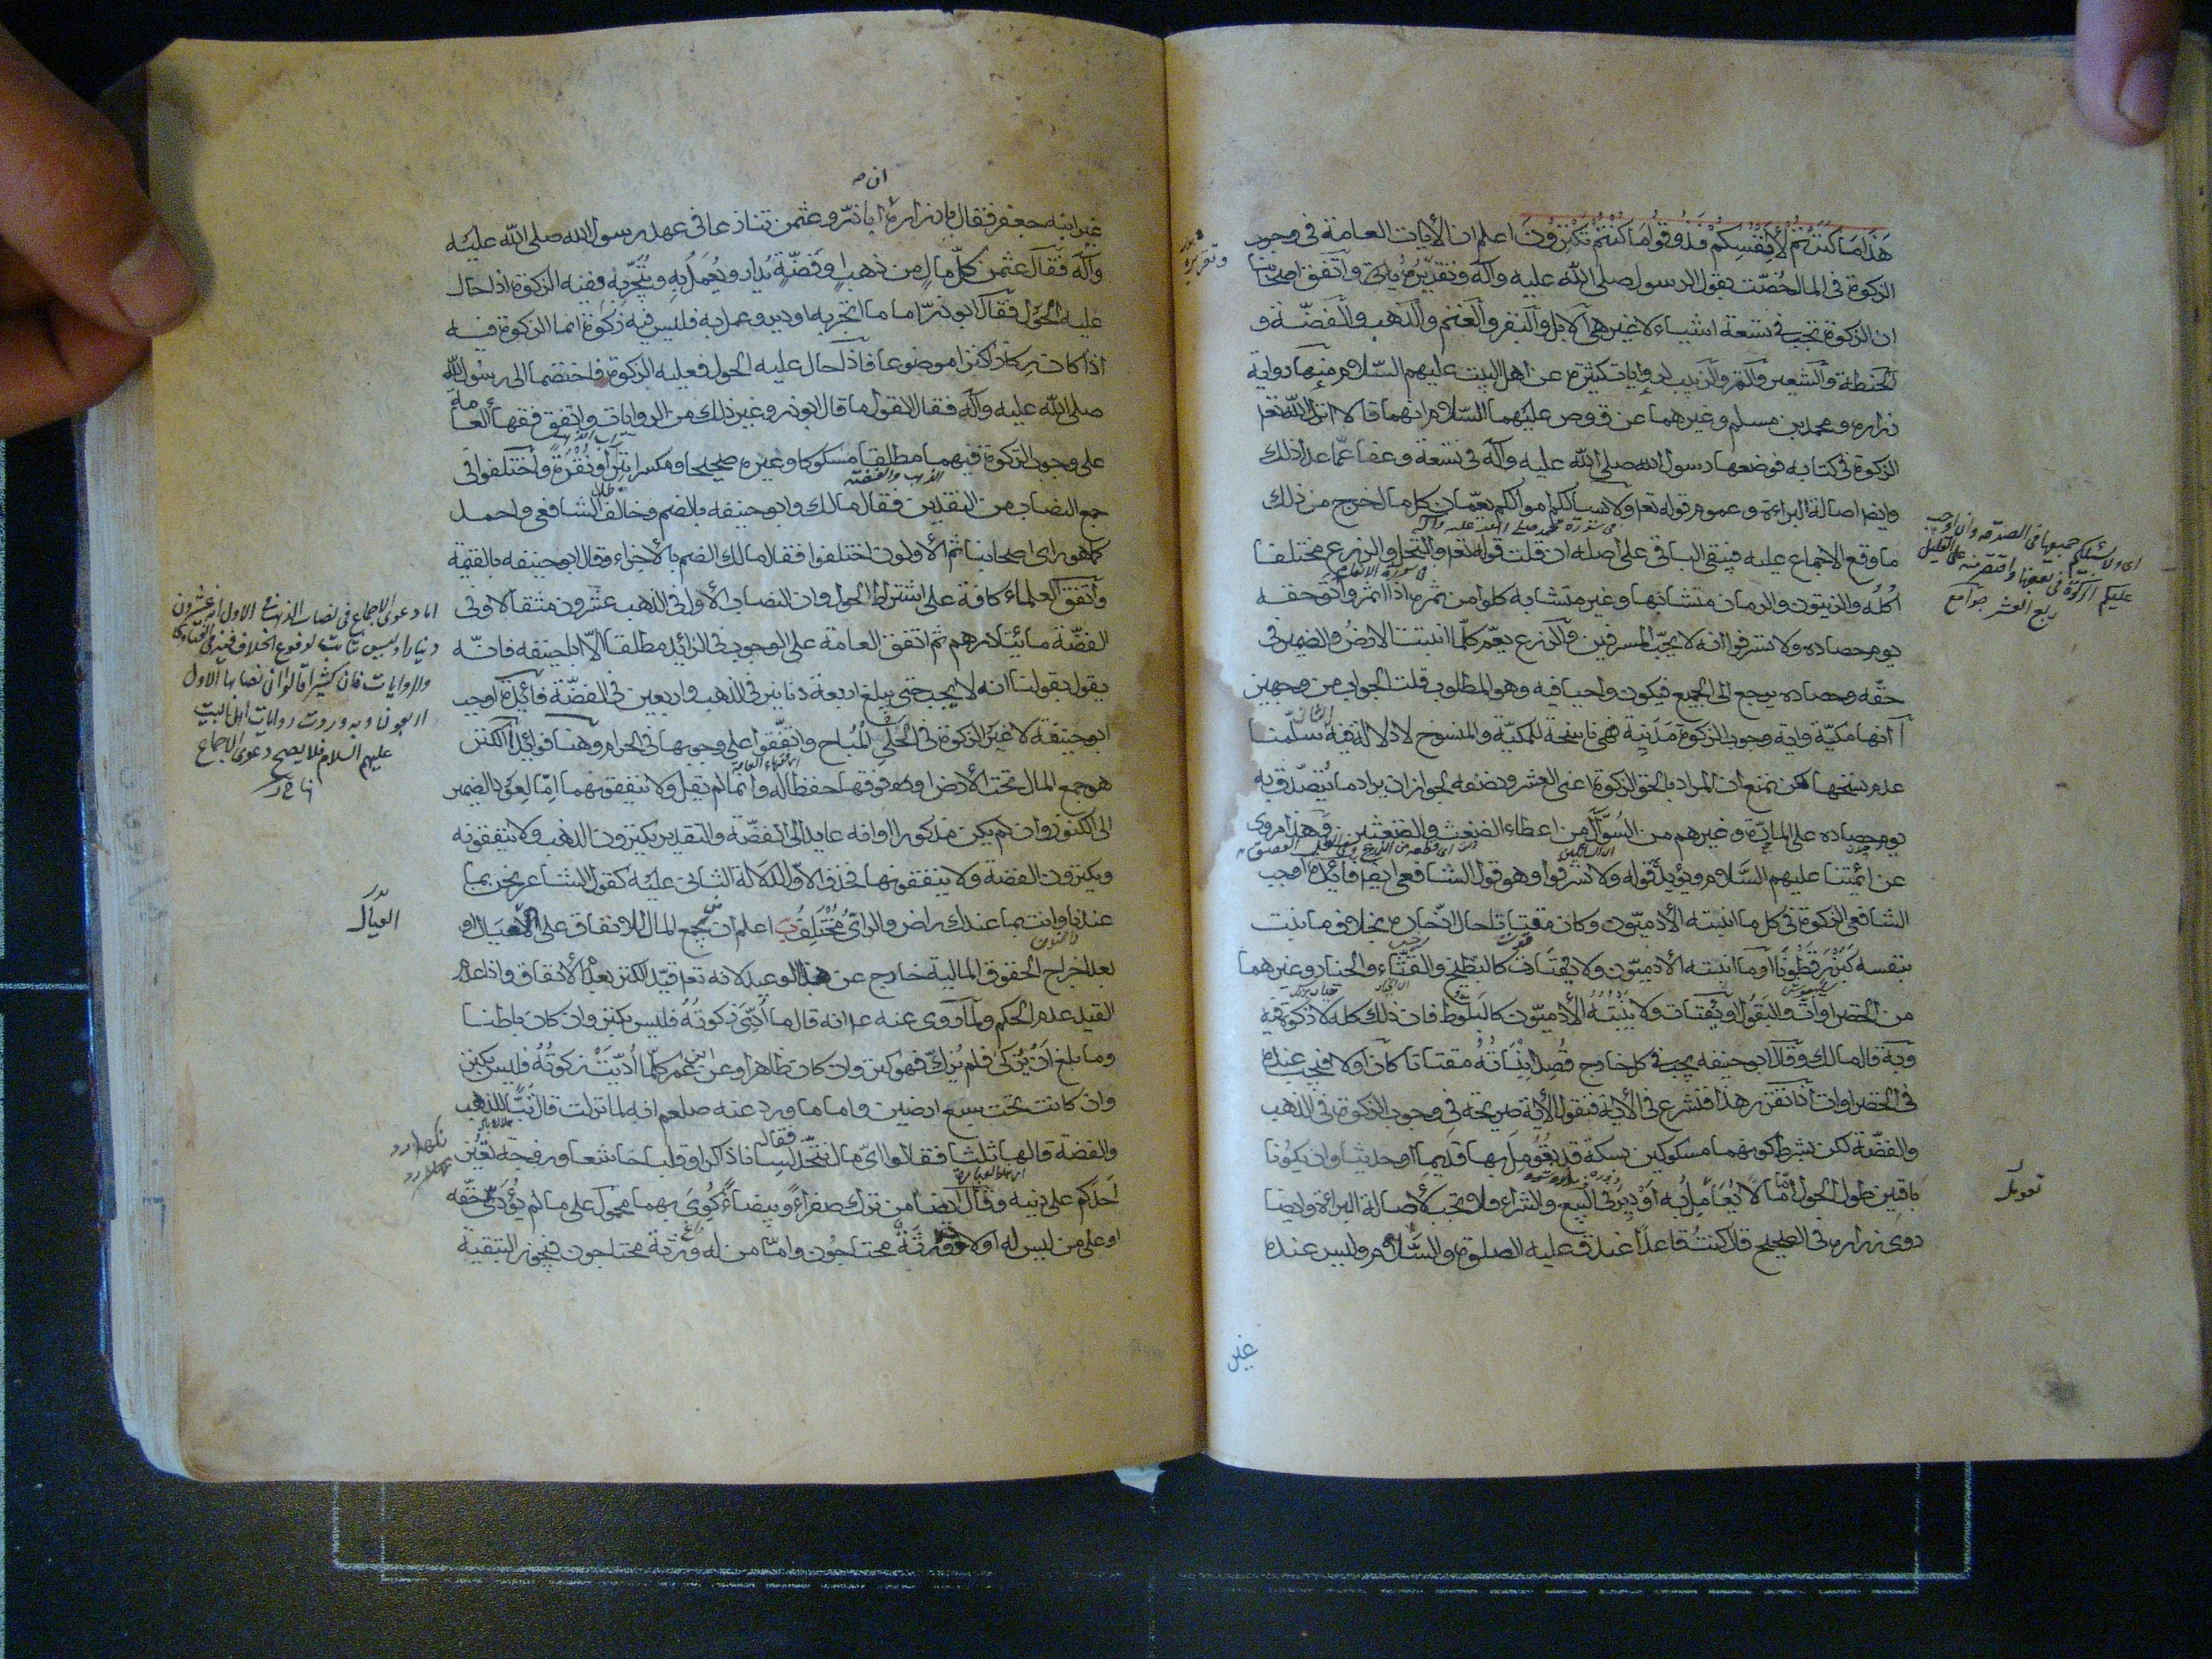 هَذَا مَا كَنَزْتُمْ لِأَنْفُسِكُمْ فَذُوقُوا مَا كُنْتُمْ تَكْنِزُونَ اعلم ان الأيات العامة في وجوب
الزكوة في المال خُصّت بقول الرسول صلى الله عليه وآله وتقديره واتفق اصحابنا
ان الزكوة تجب في تسعة اشياء لا غير هي الابل والبقر والغنم والذهب والفضّة و
الحنطة والشعير والتمر والزبيب لروايات كثيرة عن اهل البيت عليهم السّلام منها رواية
زرارة ومحمد بن مسلم وغيرهما عن ق وص عليهما السّلام انهما قالا انزل الله تعا
الزكوة في كتابه فوضعها رسول الله صلى الله عليه وآله في تسعة وعفا عمّا عدا ذلك
وايضا اصالة البراءة وعموم قوله تعا ولا يسألكم اموالكم يعمّ كل ما لخرج من ذلك
في سورة محمد صلى الله عليه وآله
ما وقع الاجماع عليه فيبقى الباقي على اصله ان قلت قوله تعا والنخل والزرع مختلفا
في سورة الانعام
اُكُلُه والزيتون والرمان متشابها وغير متشابه كلوا من ثمره اذا اثمر وآتوا حقه
يوم حصاده ولا تسرفوا انه لا يحبّ المسرفين والزرع يعمّ كلّما انبتت الارض والضمير في
حقّه وحصاده يرجع الى الجميع فيكون واجبا فيه وهو المطلوب قلت الجواب من وجهين
آ انها مكيّة واية وجوب الزكوة مَدَنِيّة فهي ناسخة للمكيّة والمنسوخ لا دلالة فيه سلّمنا
عدم نسخها لكن نمنع ان المراد بالحق الزكوة اعني العشر ونصفه لجواز ان يراد ما يُتصدّق به
يوم حصاده على المارّة وغيرهم من السُوّال من اعطاء الضغث والضغثين وهذا مروى
عن ائمتنا عليهم السَّلام ويؤيّد قوله ولا تسرفوا وهو قول الشافعي ايضا فائدة اوجب
الشافعي الزكوة في كل ما انبته الأدميّون وكان مقتاتا حال الادّخار بخلاف ما نبت
بنفسه كبَزْرِ قَطُونَا او ما انبته الأدميّون ولا يقتات كالبطّيخ والقثّاء والخيار وغيرهما
من الخضراوات والبقول او يُقتات ولا يُنْبِتُهُ الأدميّون كالبلّوط فان ذلك كله لا زكوة فيه
وبه قال مالك وقال ابو حنيفه يجب في كل خارج قُصِدَ اِنْبَاتُهُ مقتاتا كان اولا فيجب عنده
في الخضراوات اذا تقرر هذا فلنشرع في الأية فنقول الأية صريحة في وجوب الزكوة في الذهب
والفضّة لكن بشرط كونهما مسكوكين بسكّة قد يُقُومِلَ بها قديما او حديثا وان يكونا
باقيين طول الحول امّا لا يُعَامَلُ به او يدير في البيع والشراء فلا تجب لأصالة البراءة وايضا
روى زرارة في الصحيح قال كنتُ قاعدًا عند ق عليه الصلوة والسَّلام وليس عنده
غير
اى ولا يسئلكم جميعها في الصدقه وان اوجب
عليكم الزكوة في بعضها واقتصر على القليل
ربع العشر جوامع
ان
غير ابنه جعفر فقال يا زرارة ابا ذرّ وعثمن تنازعا في عهد رسول الله صلى الله عليه
وآله فقال عثمن كلّ مالٍ من ذهبٍ وفضّةٍ يُدار ويُعمل به ويُتّجر به ففيه الزكوة اذا حال
عليه الحول فقال ابو ذرّ اما ما اتّجر به او دير وعمل به فليس فيه زكوة انما الزكوة فيه
اذا كان ركازا كنزا موضوعا فاذا حال عليه الحول فعليه الزكوة فاختصما الى رسول الله
صلى الله عليه وآله فقال القول ما قال ابو ذر وغير ذلك من الروايات واتفق فقهاء العامة
على وجوب الزكوة فيهما مطلقا مسكوكا وغيره صحيحا ومكسرا تِبْرًا ونُقْرَةً واختلفوا في
الذهب والفضة
جمع النصاب من النقدين فقال مالك وابو حنيفه بالضم وخالف الشافعي واحمد
كما هو راى اصحابنا ثم الأولون اختلفوا فقال مالك الضم بالأجزاء وقال ابو حنيفه بالقيمة
واتفق العلماء كافة على اشتراط الحول وان النصاب الأول في الذهب عشرون مثقالا وفي
الفضّة مائتا درهم ثم اتفق العامة على الوجوب في الزائد مطلقا الّا ابا حنيفه فانّه
يقول بقولنا انه لا يجب حتى يبلغ اربعة دنانير في الذهب واربعين في الفضّة فائدة اوجب
ابو حنيفة لا غير الزكوة في الحُلِيّ المُباح واتّفقوا على وجوبها في الحرام وهنا فوائد آ الكنز
هو جمع المال تحت الأرض او فوقها حفظا له وانما لم يقل ولا ينفقونهما امّا لعود الضمير
الى الكنوز وان لم يكن مذكورا او انه عايد الى الفضّة والتقدير يكنزون الذهب ولا ينفقونه
ويكنزون الفضة ولا ينفقونها فحذف الاوّل لدلالة الثاني عليه كقول الشاعر نحن بما
عندنا وانت بما عندك راض والراى مُخْتَلِفُ ب اعلم ان جمع المال للانفاق على العيال او
بعد اخراج الحقوق المالية خارج عن هذا الوعيد لانه تعا قيّد الكنز بعدم الأنفاق واذا عدم
القيد عدم الحكم ولما روى عنه ع انه قال ما أُدِّيَ زكوتُهُ فليس بكنز وان كان باطنا
وما بلغ اَنْ يُزكّى فلم يُزكَّ فهو كنز وان كان ظاهرا وعن ابن عمر كلّما أُدّيَتْ زكوتُهُ فليس بكنز
وان كانت تحت سبع ارضين واما ما ورد عنه صلعم انه لما نزلت قال تَبًّا للذهب
والفضة قالها ثلثا فقالوا اىّ مال نتّخذ فقال لسانا ذاكرا وقلبا خاشعا وزوجة تعين
احدكم على دينه وقال ايضا من ترك صفراءَ وبيضاءَ كُوِىَ بهما محمول على ما لم يُؤدّى حقّه
او على من ليس له اولاد وورثةٌ محتاجُون وامّا من له ورثة محتاجون فيجوز التبقية
اما دعوى الاجماع في نصاب الذهب الاول انه عشرون
دينارا وليس ثابت لوقوع الخلاف فيه في الفتاوى
والروايات فان كثيرا قالوا ان نصابها الاول
اربعونا وبه وروت روايات اهل البيت
عليهم السلام فلا يصح دعوى الاجماع
العيال